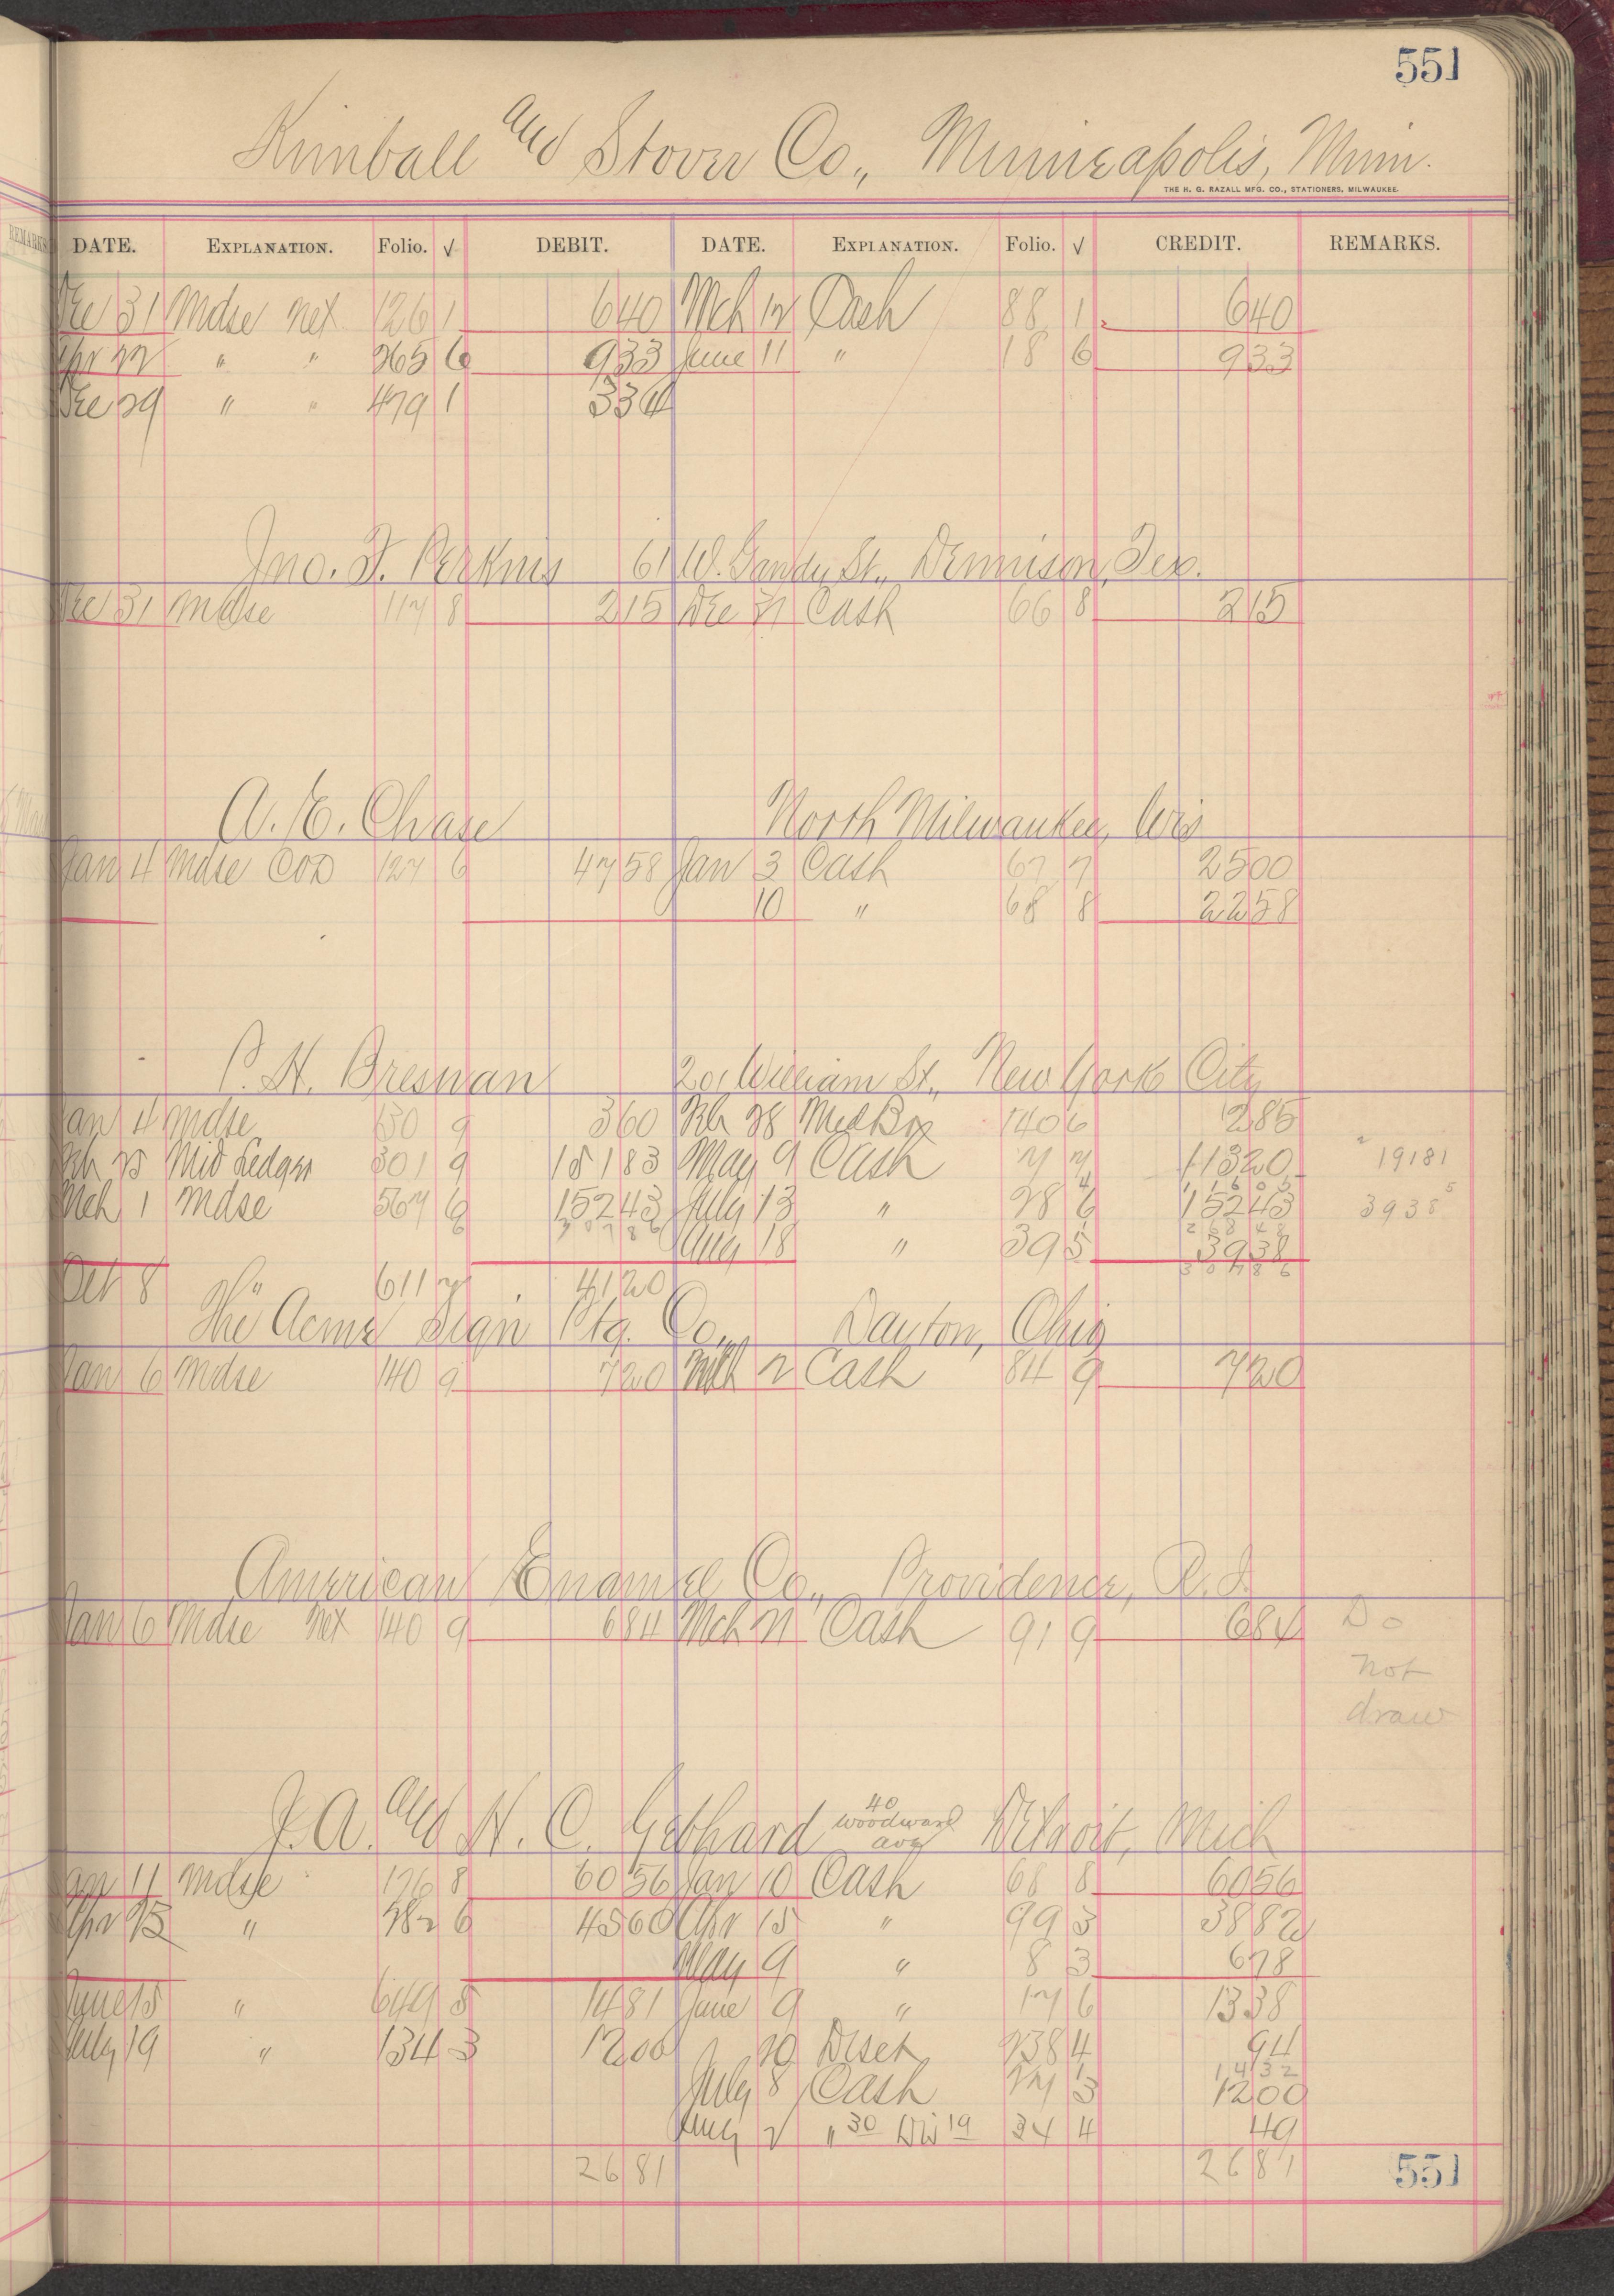 551
Kimball and Stover Co., Minneapolis, Minn.
THE H. G. RAZALL MFG. CO., STATIONERS, MILWAUKEE.
REMARKS
DATE. EXPLANATION. Folio. √ DEBIT. DATE. EXPLANATION. Folio. √ CREDIT. REMARKS.
Dec 31 Mdse net 126 1 640 Mch 12 Cash 88 1 640
Apr 22 " " 265 6 933 June 11 " 18 6 933
Dec 29 " " 479 1 334
Jno. F. Perkins 61 W. Gandy St., Dennison, Tex.
Dec 31 Mdse 117 8 215 Dec 31 Cash 66 8 215
A. E. Chase North Milwaukee, Wis
Jan 4 Mdse COD 127 6 4758 Jan 3 Cash 67 7 2500
10 " 68 8 2258
P. H. Bresnan 201 William St., New York City
Jan 4 Mdse 130 9 360 Feb 28 Mdse 140 6 285
Feb 25 Mid Ledger 301 9 15183 May 9 Cash 7 7 11320 19181
Mch 1 Mdse 567 6 15243 July 13 " 28 6 15243 39385
30786 Aug 18 " 39 5 3938
30786
Oct 8 " 611 7 4120
The Acme Sign Ptg. Co., Dayton, Ohio
Jan 6 Mdse 140 9 720 Mch 2 Cash 84 9 720
American Enamel Co., Providence, R. I.
Jan 6 Mdse net 140 9 684 Mch 21 Cash 91 9 684 Do
not
draw
J. A. and H. C. Gebhard 40 Woodward ave Detroit, Mich
Jan 11 Mdse 176 8 6056 Jan 10 Cash 68 8 6056
Apr 13 " 282 6 4560 Apr 15 " 99 3 3882
May 9 " 8 3 678
June 15 " 649 5 1481 June 9 " 17 6 1338
July 19 " 134 3 1200 20 Disct 238 4 94
1432
July 8 Cash 24 3 1200
Aug 2 " 30 Dis 19 34 4 49
2681 2681
551